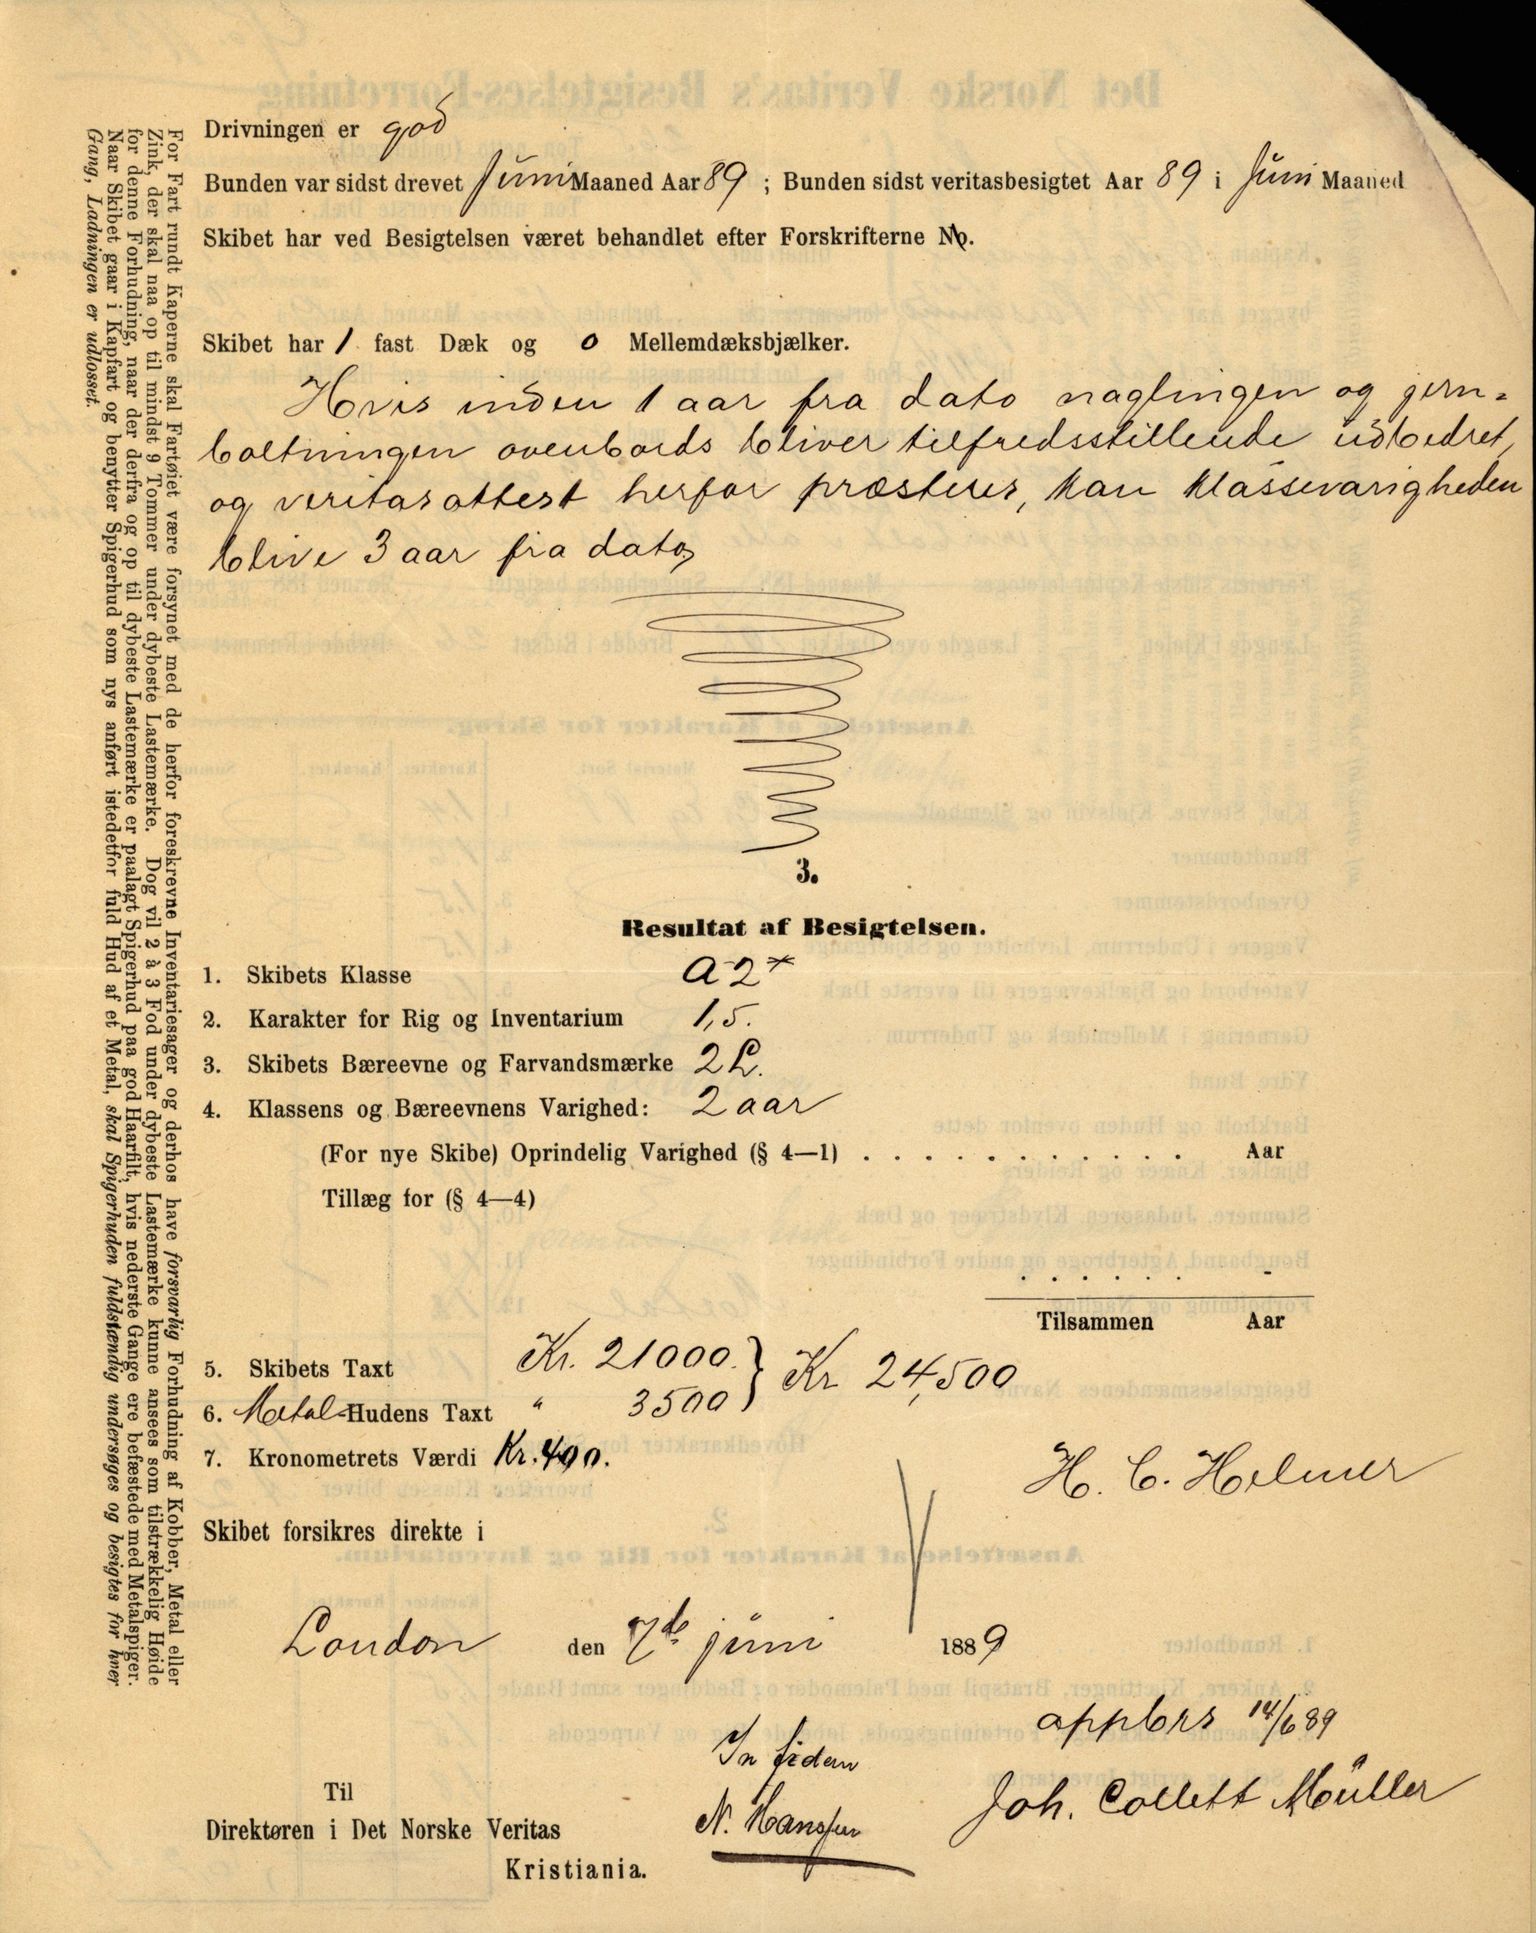 Drivningen er god
Bunden var sidst drevet Juni Maaned Aar 89 ; Bunden sidst veritasbesigtet Aar 89 i Juni Maaned
Skibet har ved Besigtelsen været behandlet efter Forskrifterne No.
Skibet har 1 fast Dæk og 0 Mellemdæksbjælker.
Hvis inden 1 aar fra dato naglingen og jern=
boltningen ovenbords bliver tilfredsstillende udbedret,
og veritasattest herfor præsteres, kan klassevarigheden
blive 3 aar fra dato,
3.
Resultat af Besigtelsen.
1. Skibets Klasse A 2*
2. Karakter for Rig og Inventarium 1,5.
3. Skibets Bæreevne og Farvandsmærke 2 L.
4. Klassens og Bæreevnens Varighed: 2 aar
(For nye Skibe) Oprindelig Varighed (§ 4—1) . . . . . . . . . . . Aar
Tillæg for (§ 4—4)
. . . . . . -
Tilsammen Aar
5. Skibets Taxt Kr. 21000. } Kr 24,500
6. Metal-Hudens Taxt " 3500
7. Kronometrets Værdi Kr. 400.
H. C. Helmer
Skibet forsikres direkte i
London den 7de juni 1889
appbrs 14/6 89
In fidem
Joh. Collett Müller
Til
N. Hansen
Direktøren i Det Norske Veritas
Kristiania.
For Fart rundt Kaperne skal Fartøiet være forsynet med de herfor foreskrevne Inventariesager og derhos have forsvarlig Forhudning af Kobber, Metal eller
Zink, der skal naa op til mindst 9 Tommer under dybeste Lastemærke. Dog vil 2 à 3 Fod under dybeste Lastemærke kunne ansees som tilstrækkelig Høide
for denne Forhudning, naar der derfra og op til dybeste Lastemærke er paalagt Spigerhud paa god Haarfilt, hvis nederste Gange ere befæstede med Metalspiger.
Naar Skibet gaar i Kapfart og benytter Spigerhud som nys anført istedetfor fuld Hud af et Metal, skal Spigerhuden fuldstændig undersøges og besigtes for hver
Gang, Ladningen er udlosset.